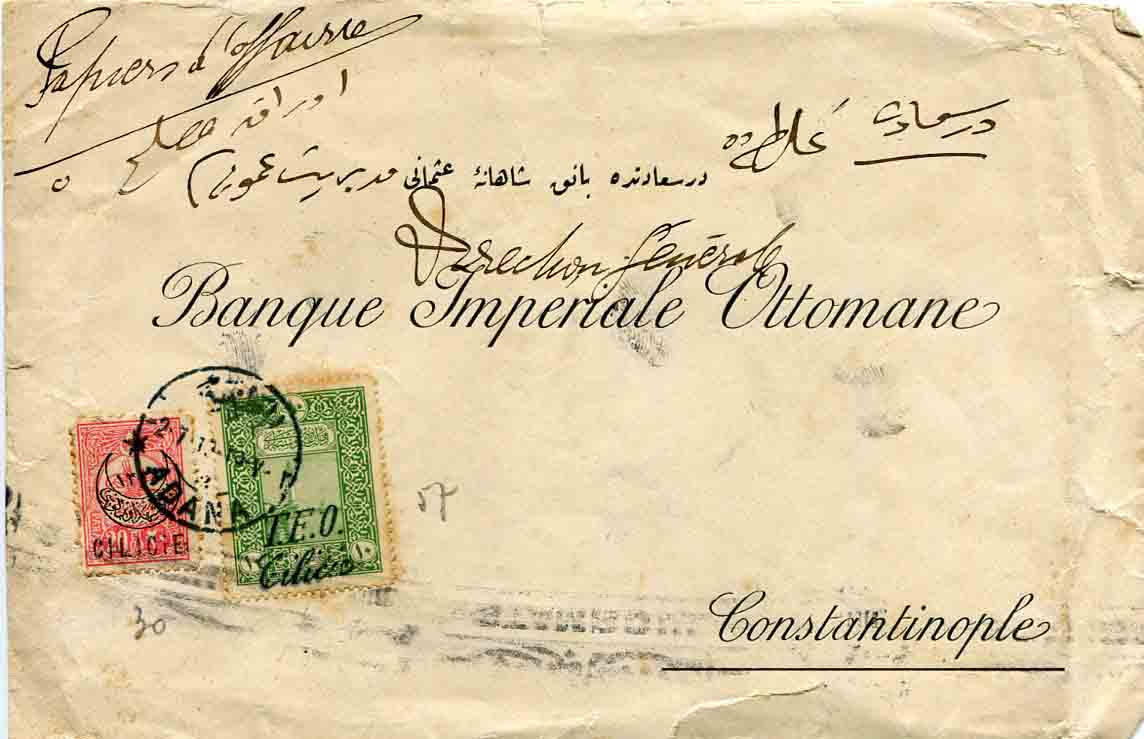 Papiers d'affaire
اوراق
درسعادت غلطه ده
درسعادتده بانق شاهانهٔ عثمانی مدیریت عمومی
Direction Générale
Banque Imperiale Ottomane
ADANA
CILICIE
T.E.O
Cilicie
١٠ ١٠
57
30
Constantinople